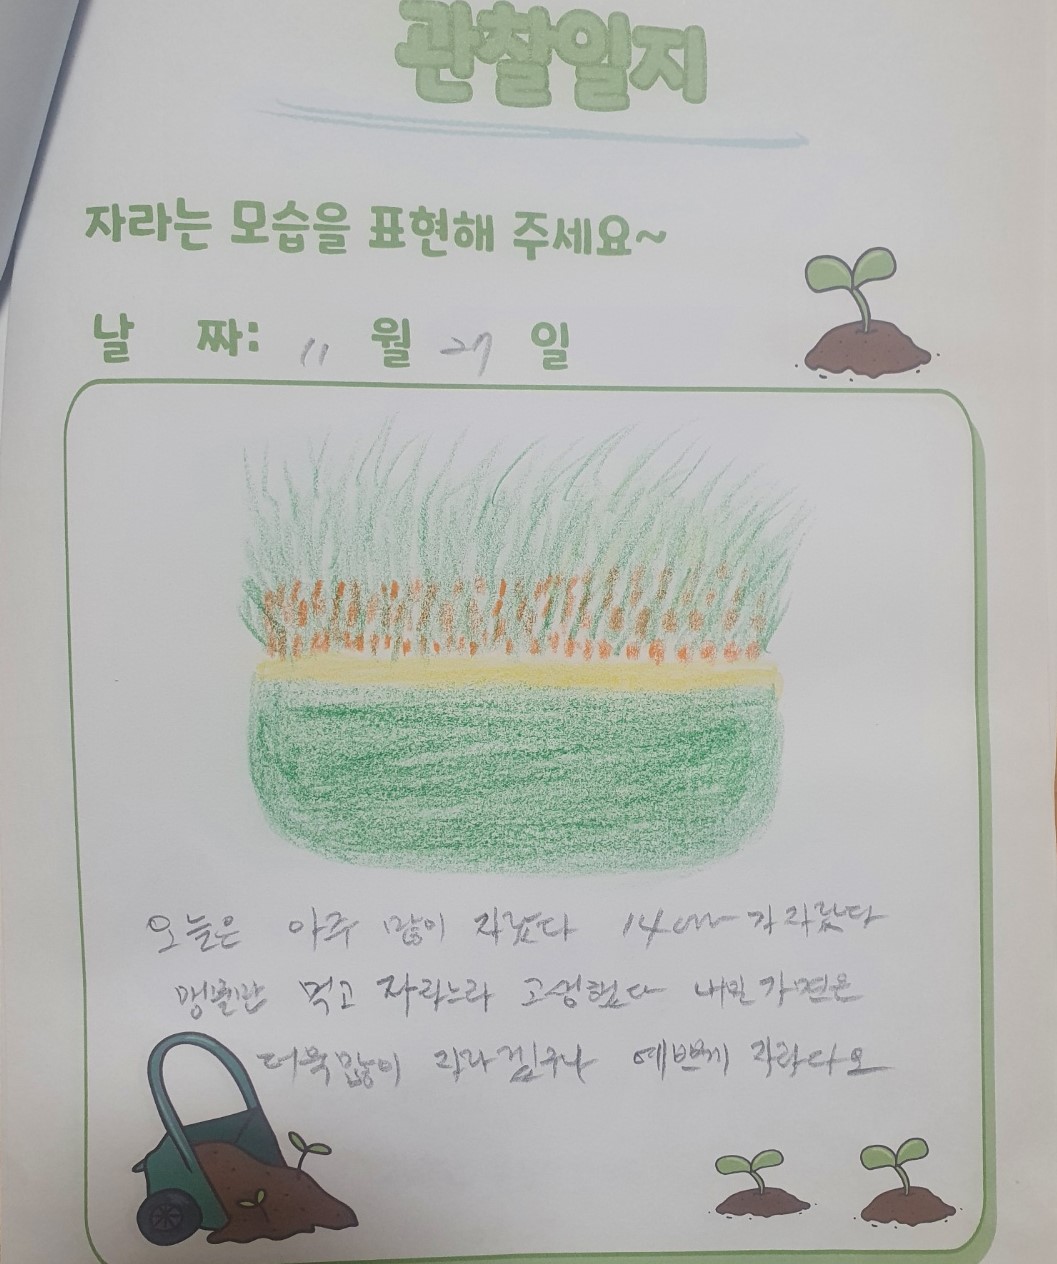 관찰일지
자라는 모습을 표현해 주세요~
날 짜: 11 월 27 일
오늘은 아주 많이 자랐다 14cm가 자랐다
먹고 자라느라 고생했다 내일
더욱많이 자라겠구나 예쁘게 자라다오